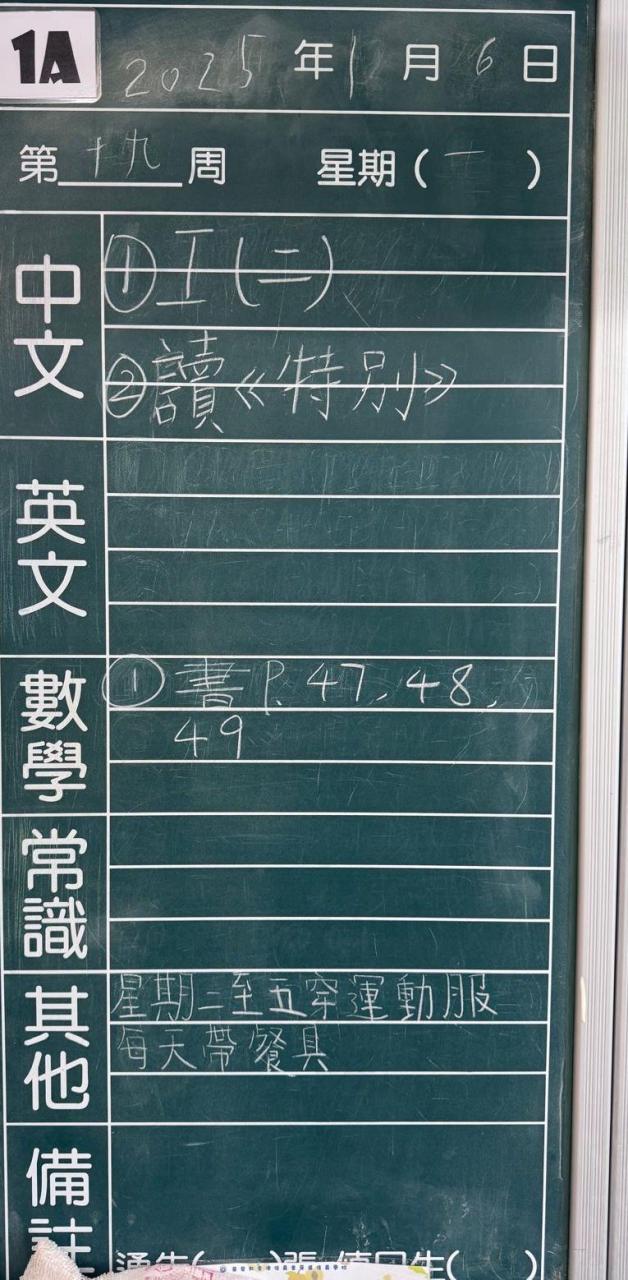 1A
2025年1月6日
第十九周 星期(一)
中文
①工(二)
②讀《特別》
英文
數學
①書P.47,48,
49
常識
其他
星期二至五穿運動服
每天帶餐具
備註